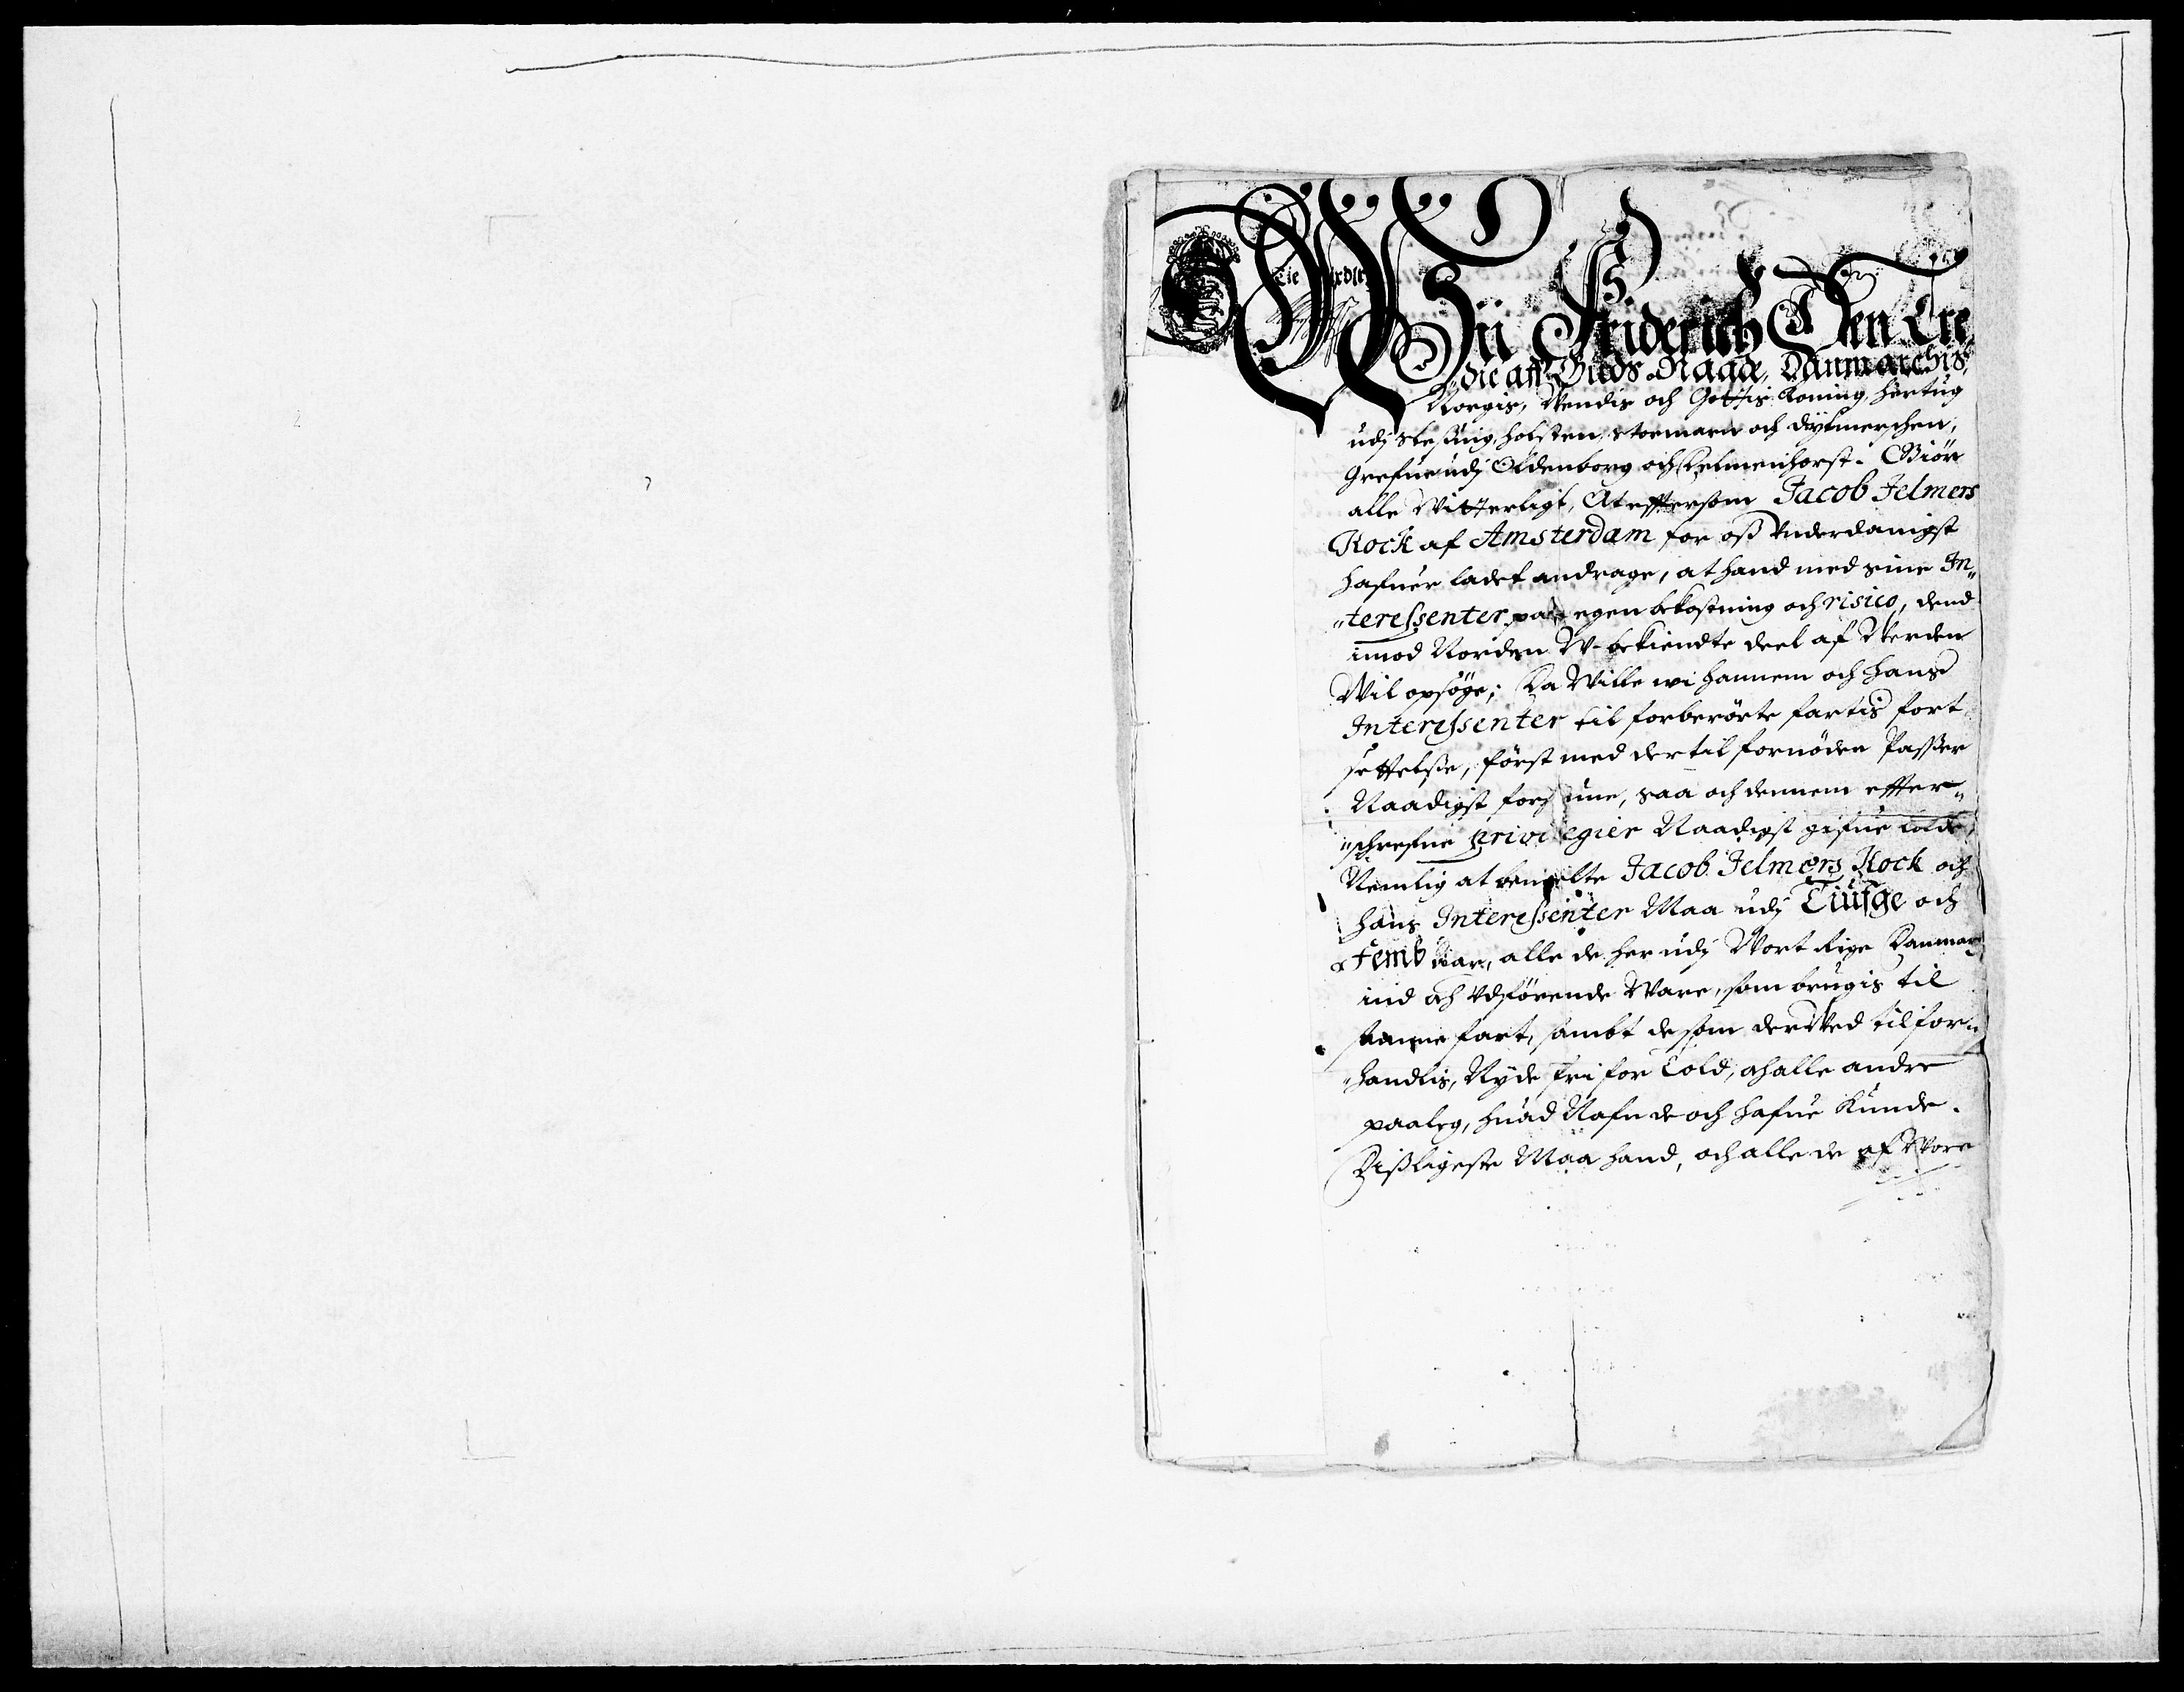 Wii Friderich Den Tre
die aff Guds Naade, Danmarchis,
Norgis, Vendis och Gottis Koning, Hertug
udj Slesuig, Holsten, Stormarn och Dytmerschen,
Grefue udj Oldenborg och Delmenhorst. Giöre
alle Witterligt, At effterson Jacob Jelmers
Kock af Amsterdam for oß Underdanigst
hafuer ladet andrage, at hand med sine In„
„teressenter paa egen bekostning och risico, dend
imod Norden W-bekiendte deel af Werden
Wil opsöge; Da Wille wi hannem och hans
Interessenter til forberörte fartis fort
settelße, först med dertil fornöden Paßer
Naadigst fors une, saa och dennem effter„
„schrefne privilegier Naadigst gifue lade,
Nemlig at bemelte Jacob Jelmers Kock och
hans Interessenter Maa udj Tiufge och
Femb Aar, alle de her udj Wort Rige Danmarch
ind och Udförende Ware, som brugis til
samme fart, sambt de som derWed tilfor„
„handlis, Nyde fri for Told, och alle andre
paaleg, huad Nafn de och hafue Kunde.
Dißligeste Maa hand, och alle de af Wore